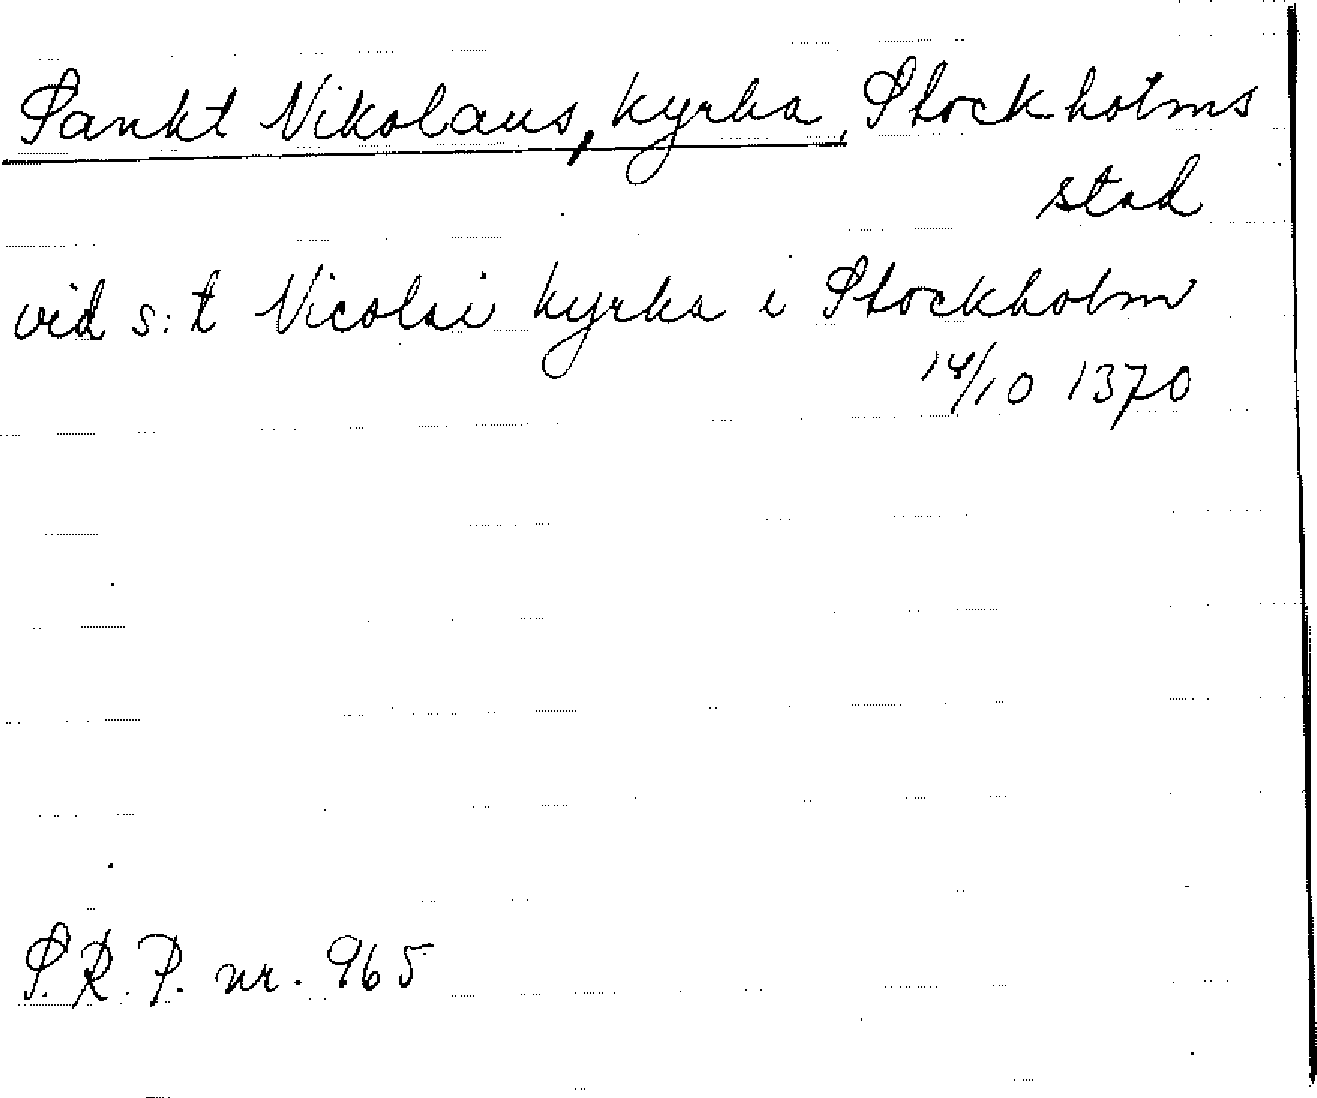 Sankt Nikolaus, kyrka, Stockholms
stad
vid s:t Nicolai kyrka i Stockholm
14/10 1370
S.R.P. nr. 965